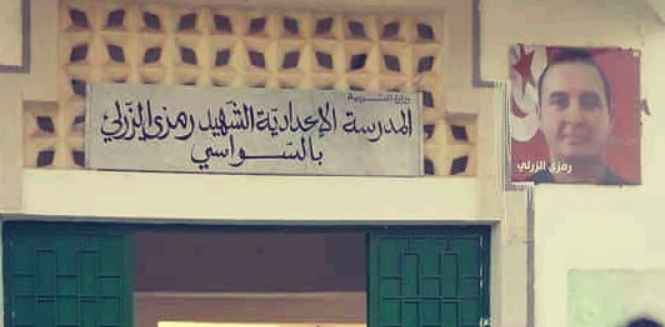 وزارة التـــربية
المدرسة الإعداديّة الشّهيد رمزي الزّرلي
بالسّـواسي
رمزي الزرلي